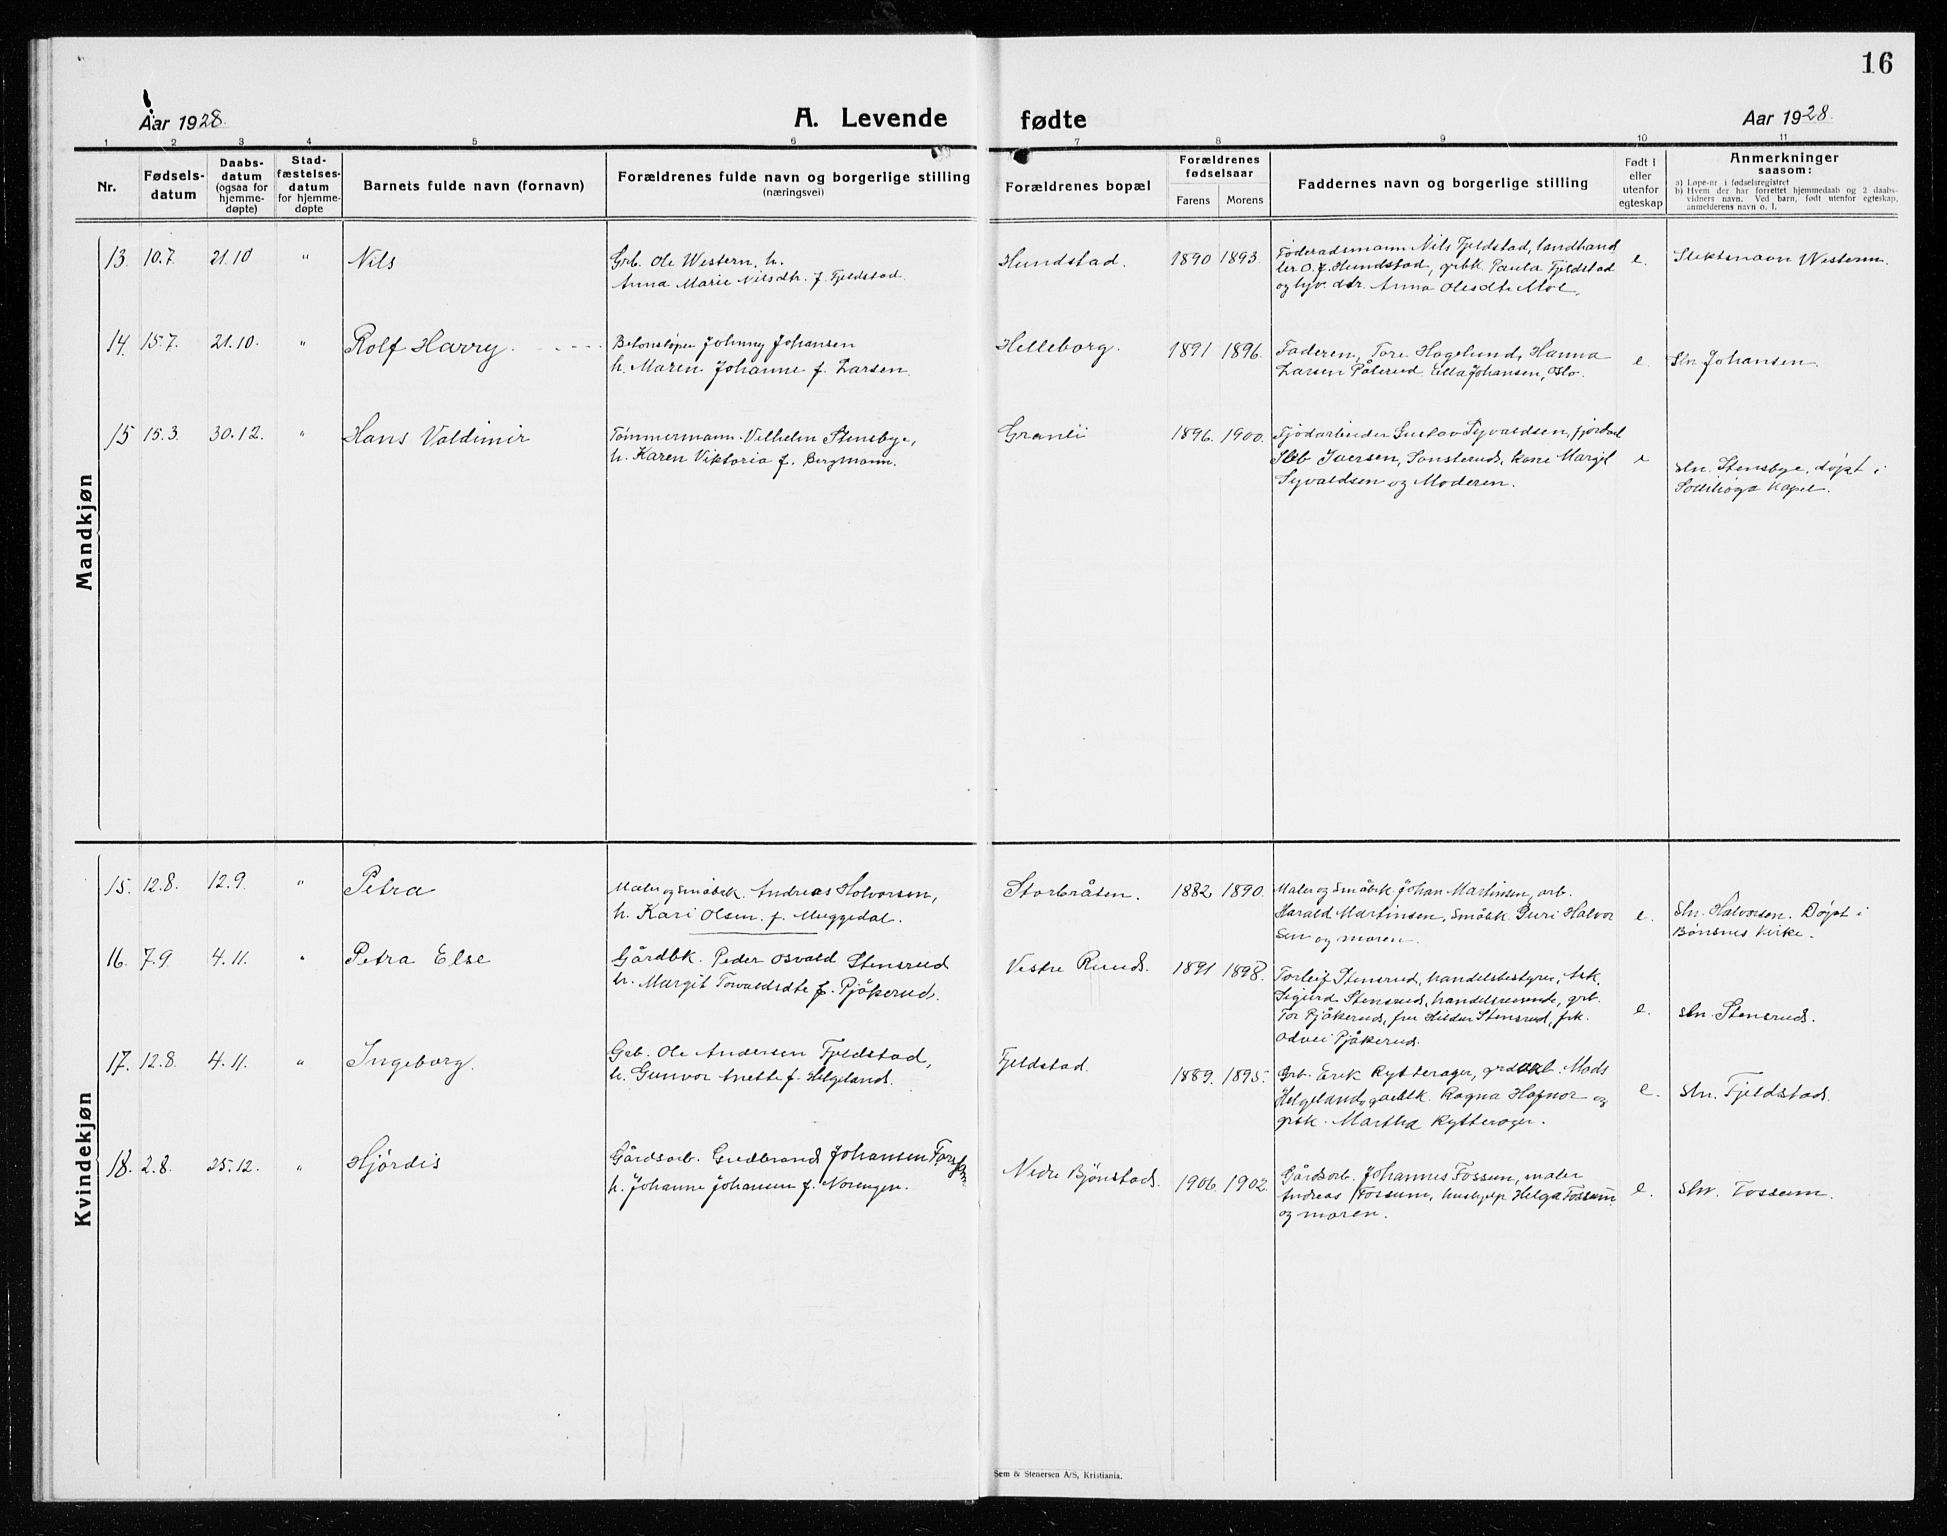 16
Aar 1928.
A. Levende
fødte
Aar 1928.
1 2 3 4 5 6 7 8 9 10 11
Nr.
Fødsels-
datum
Daabs-
datum
(ogsaa for
hjemme-
døpte)
Stad-
fæstelses-
datum
for hjemme-
døpte
Barnets fulde navn (fornavn)
Forældrenes fulde navn og borgerlige stilling
(næringsvei)
Forældrenes bopæl
Forældrenes
fødselsaar
Farens Morens
Faddernes navn og borgerlige stilling
Født i
eller
utenfor
egteskap
Anmerkninger
saasom:
a) Løpe-nr i fødselsregistret
b) Hvem der har forrettet hjemmedaab og 2 daabs-
vidners navn. Ved barn, født utenfor egteskap,
anmelderens navn o. l.
Mandkjøn
13. 10.7. 21.10 " Nils
Grb. Ole Western, h.
Anna Marie Nilsdtr. f. Fjeldstad.
Hundstad. 1890 1893.
Føderadsmann Nils Fjeldstad, landhand
ler O. J. Hundstad, grbk. Paula Fjeldstad
og Anna Olesdtr Moe.
e.
Slektsnavn Western.
14. 15.7. 21.10. " Rolf Harry.
Betonstøper Johnny Johansen
h. Maren Johanne f. Larsen.
Helleborg. 1891 1896.
Faderen, Tore Hagelund, Hanna
Larsen Pålerud, Ella Johansen, Oslo.
e.
Sln Johansen.
15 15.3. 30.12. " Hans Valdimir
Tømmermann Vilhelm Stensbye,
h. Karen Viktoria f. Bergmann.
Granli 1896. 1900.
Gustav Syvaldsen,
Iversen, Sønsterud, kone Margit
Syvaldsen og Moderen.
e
Sln. Stensbye, døpt i
Sollihøgda kapel.
Kvindekjøn
15. 12.8. 12.9. " Petra
Maler og småbrk. Andreas Halvorsen,
h. Kari Olsen f. Muggedal.
Storbråten. 1882 1890.
Maler og Småbk. Johan Martinsen, arb.
Harald Martinsen, Småbk. Guri Halvor
sen og moren.
e.
Sln. Halvorsen. Døpt i
Bønsnes kirke.
16. 7.9 4.11. " Petra Else
Gårdbk. Peder Osvald Stensrud
h. Margit Torvaldsdtr f. Pjåkerud.
Vestre Rud. 1891 1898.
Torleif Stensrud, handelsbestyrer, Ask,
Sigurd Stensrud, handelsreisende, grb.
Tor Pjåkerud, fru Hildur Stensrud, frk.
Odvei Pjåkerud.
e.
Sln. Stensrud.
17. 12.8. 4.11. " Ingeborg.
Grb. Ole Andersen Fjeldstad,
h. Gunvor Anette f. Helgeland.
Fjeldstad. 1889. 1895.
Grb. Erik Rytterager, grdarb. Mads
Helgeland, Ragna Hafnor og
grbk. Martha Rytterager.
e.
Sln. Fjeldstad.
18. 2.8. 25.12. " Hjørdis
Gårdsarb. Gudbrand Johansen
h. Johanne Johansen f. Norengen.
Nedre Bjønstad. 1906. 1902.
Gårdsarb. Johannes Fossum, maler
Andreas Fossum, hushjelp Helga Fossum
og moren.
e.
Sln. Fossum.
Sem & Stenersen A/S, Kristiania.